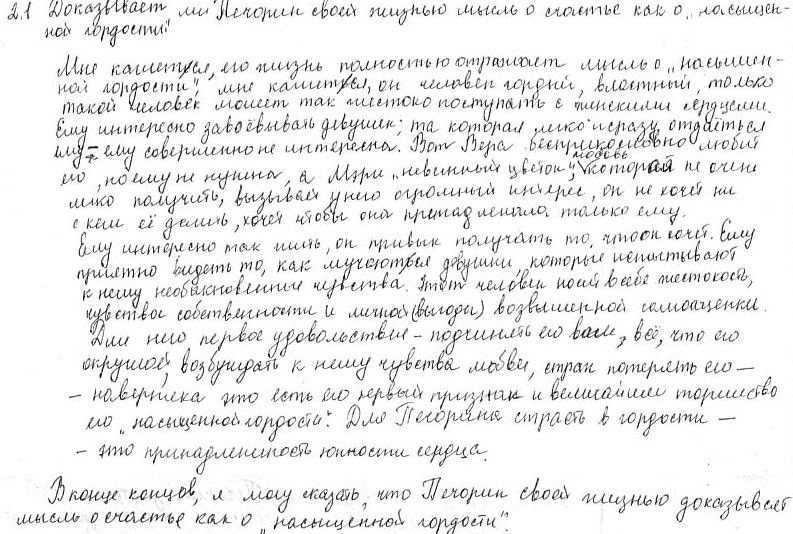 2.1 Доказывает ли Печорин своей жизнью мысль о счастье как о „насыщен-
ной гордости"
Мне кажется, его жизнь полностью отражает мысль о „насыщен-
ной гордости", мне кажется, он человек гордый, властный, только
такой человек может так жестоко поступать с женскими сердцами.
Ему интересно завоёвывать девушек; та которая легко и сразу отдаёться
ему – ему совершенно не интересна. Вот Вера беспрекословно любит
его, но ему не нужна, а Мэри „невинный цветок", любовь которой не очень
легко получить, вызывает у него огромный интерес, он не хочет ни
с кем её делить, хочет чтобы она принадлежала только ему.
Ему интересно так жить, он привык получать то, что он хочет. Ему
приятно видеть то, как мучаются девушки, которые испытывают
к нему необыкновенные чувства. Этот человек носит в себе жестокость,
чувство собственности и личной (выгоды) возвышенной самооценки.
Для него первое удовольствие – подчинять его воле, всё, что его
окружает, возбуждать к нему чувства любви, страх потерять его –
– наверняка это есть его первый признак и величайшее торжество
его „насыщенной гордости". Для Печорина страсть в гордости –
– это принадлежность юности сердца.
В конце концов, я могу сказать, что Печорин своей жизнью доказывает
мысль о счастье как о „насыщенной гордости".